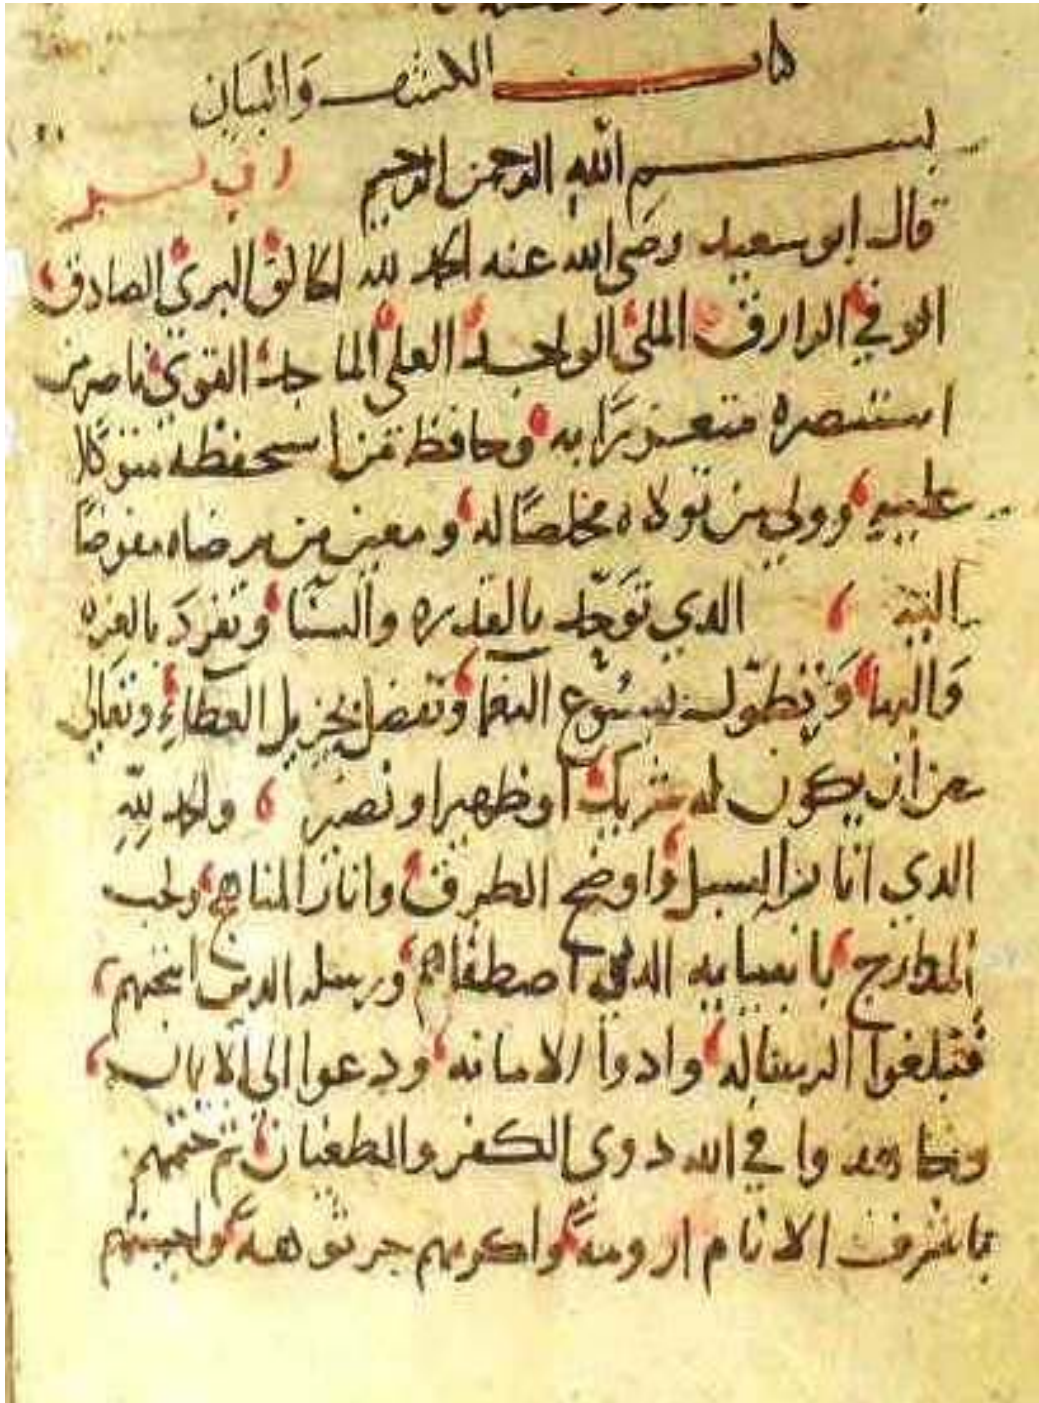 كتاب الكشف والبيان
بسم الله الرحمن الرحيم رب يسر
قال ابو سعيد رضي الله عنه الحمد لله الخالق البري الصادق
الوفي الرازق الملي الواجد العلي الماجد القوي ناصر من
استنصره متعززا به وحافظ من استحفظه متوكلا
عليه وولي من تولاه مخلصا له ومعين من رضاه مفوضا
اليه الذي توحد بالقدره والسنا وتفرد بالعزه
والبها وتطول بسبوغ النعما وتفضل بجزيل العطاء وتعالى
عن ان يكون له شريك او ظهير او نصير والحمد لله
الذي ابان السبل واوضح الطرق وانار المناهج ولحب
المدارج بانبيايه الذين اصطفاهم ورسله الذين انتخبهم
فبلغوا الرساله وادوا الامانه ودعوا الى الايمان
وجاهدوا في الله ذوي الكفر والطغيان ثم ختمهم
باشرف الانام ارومة واكرمهم جرثومة